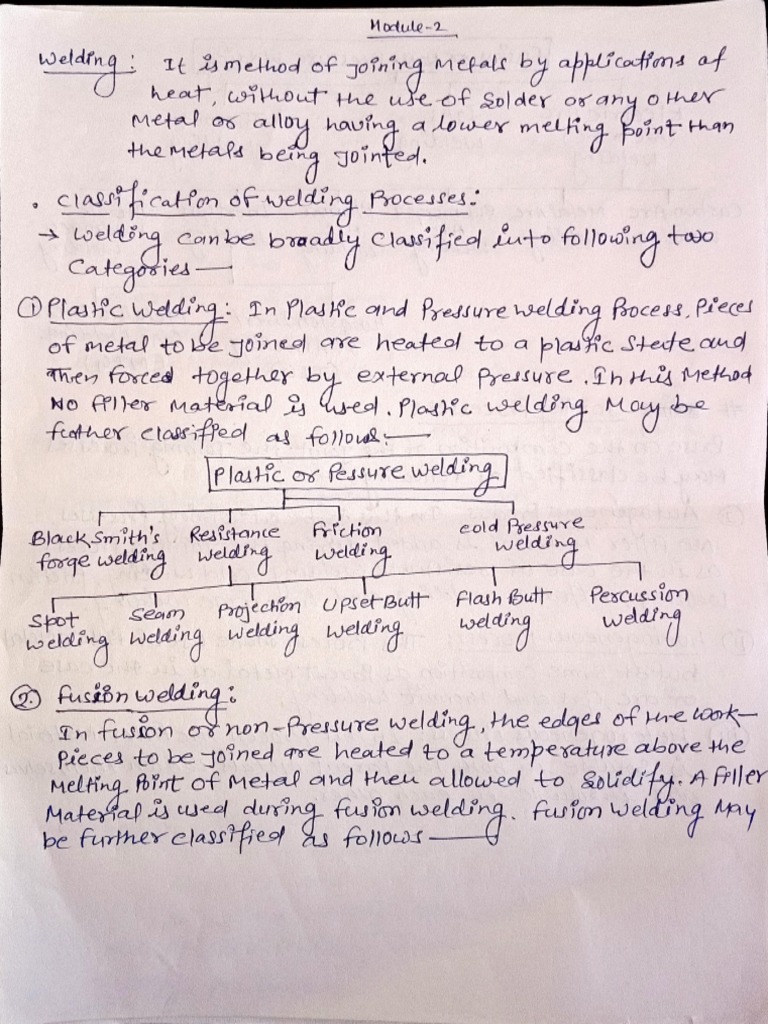 Module-2
Welding: It is method of joining metals by applications of
heat, without the use of solder or any other
metal or alloy having a lower melting point than
the metals being jointed.
. Classification of welding Processes:
→ Welding can be broadly classified into following two
Categories —
① Plastic Welding: In Plastic and Pressure welding Process, Pieces
of metal to be joined are heated to a plastic state and
Then forced together by external pressure. In this Method
No filler Material is used. Plastic welding May be
further classified as follows:—
Plastic or Pessure welding
Black Smith's Resistance Friction cold Pressure
forge welding welding welding welding
Spot Seam Projection Upset Butt Flash Butt Percussion
welding welding welding welding welding welding
②. fusion welding:
In fusion or non-Pressure welding, the edges of the work-
Pieces to be joined are heated to a temperature above the
Melting Point of Metal and then allowed to Solidify. A filler
Material is used during fusion welding. fusion welding May
be further classified as follows —